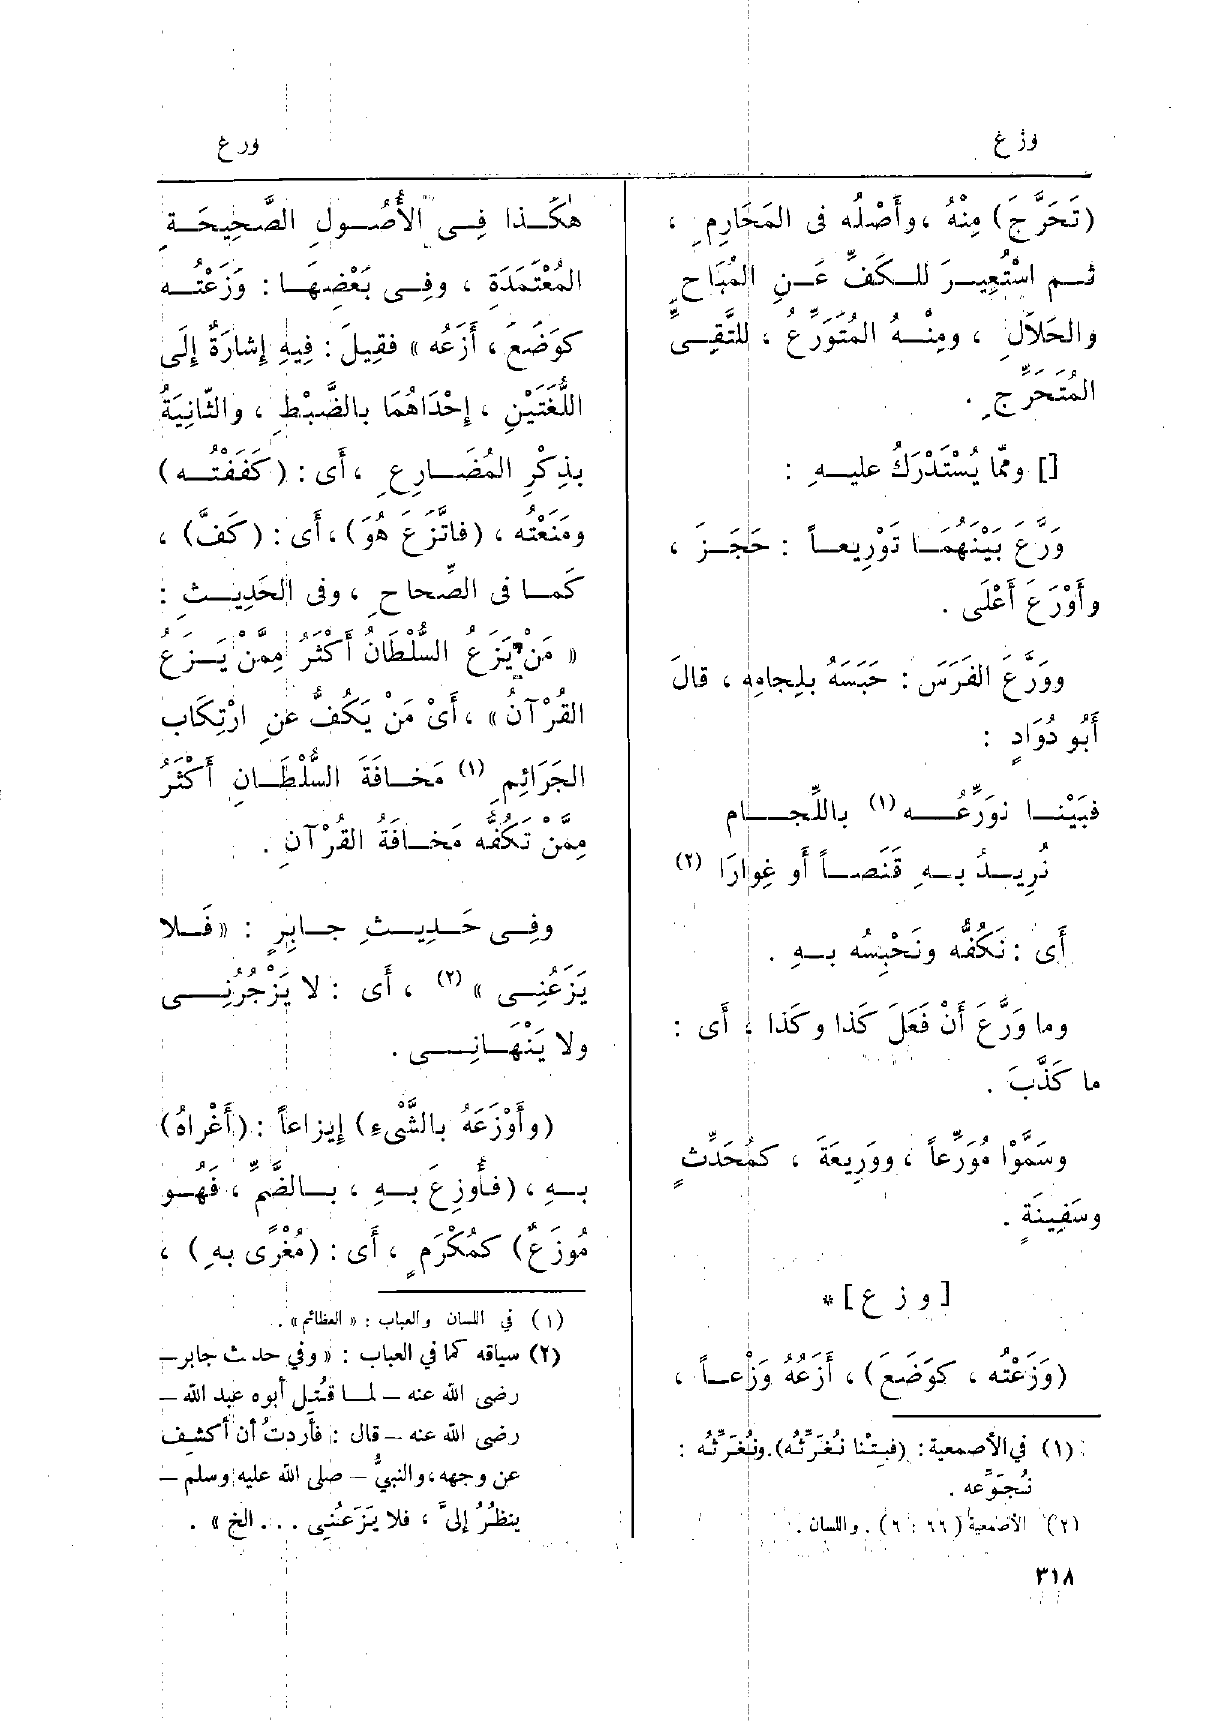 وزع
ورع
(تَحَرَّجَ) مِنْهُ ، وأَصْلُه فى المَحَارِمِ ،
ثـم اسْتُعِيـرَ للـكَفِّ عَـنِ المُبَاحِ
والحَلَالِ ، ومِنْـهُ المُتَوَرِّعُ ، للتَّقِـىِّ
المُتَحَرِّجِ .
[] وممّا يُسْتَدْرَكُ عليـهِ :
وَرَّعَ بَيْنَهُمَـا تَوْرِيعـاً : حَجَـزَ ،
وأَوْرَعَ أَعْلَى .
ووَرَّعَ الفَرَسَ : حَبَسَهُ بلِجامِهِ ، قالَ
أَبُو دُوَادٍ :
فبَيْنـا نُوَرِّعُـــه (١) باللِّجَـــام
نُرِيــدُ بــهِ قَنَصــاً أو غِوارَا (٢)
أَى : نَكُفُّه ونَحْبِسُه بـهِ .
وما وَرَّعَ أَنْ فَعَلَ كَذا وكَذا ، أَى :
ما كَذَّبَ .
وسَمَّوْا مُوَرِّعاً ، ووَرِيعَةَ ، كمُحَدِّثٍ
وسَفِينَةٍ .
[ و ز ع ] *
(وَزَعْتُه ، كوَضَعَ) ، أَزَعُهُ وَزْعـاً ،
(١) في الأصمعية : (فبِتْنا نُغَرِّثُه). ونُغَرِّثُه :
نُجَوِّعه .
(٢) الأصمعية (٦٦ : ٦) . واللسان .
٣١٨
هٰكَـذا فِـى الأُصُـولِ الصَّحِيحَـةِ
المُعْتَمَدَةِ ، وفِـى بَعْضِهَـا : وَزَعْتُـه
كوَضَعَ ، أَزَعُه » فقِيلَ : فِيهِ إِشارَةٌ إِلَى
اللُّغَتَيْنِ ، إِحْدَاهُمَا بالضَّبْطِ ، والثّانِيَةُ
بذِكْرِ المُضَـارِعِ ، أَى : (كَفَفْتُـه)
ومَنَعْتُه ، (فاتَّزَعَ هُوَ) ، أَى : (كَفَّ) ،
كَمـا فى الصِّحاحِ ، وفى الحَدِيـثِ :
« مَنْ يَزَعُ السُّلْطَانُ أَكْثَرُ مِمَّنْ يَـزَعُ
القُرْآنُ » ، أَىْ مَنْ يَكُفُّ عنِ ارْتِكَابِ
الجَرَائِمِ (١) مَخـافَةَ السُّلْطَـانِ أَكْثَرُ
مِمَّنْ تَكُفُّه مَخـافَةُ القُرْآنِ .
وفِـى حَـدِيـثِ جـابِرٍ : « فَـلا
يَزَعُنِـى » (٢) ، أَى : لا يَزْجُرُنِـــى
ولا يَنْهَـانِــى .
(وأَوْزَعَهُ بالشَّىْءِ) إِيزاعاً : (أَغْراهُ)
بــهِ ، (فأُوزِعَ بــهِ ، بــالضَّمِّ ، فَهُـو
مُوزَعٌ) كمُكْرَمٍ ، أَى : (مُغْرًى بهِ) ،
(١) في اللسان والعباب : « العظائم » .
(٢) سياقه كما في العباب : « وفي حدث جابر —
رضى الله عنه — لمـا قُتـل أبوه عبد الله —
رضى الله عنه — قال : فأردتُ أن أكشف
عن وجهه ، والنبيُّ — صلى الله عليه وسلم —
ينظُرُ إلىَّ ، فلا يَزَعُنى . . . الخ » .